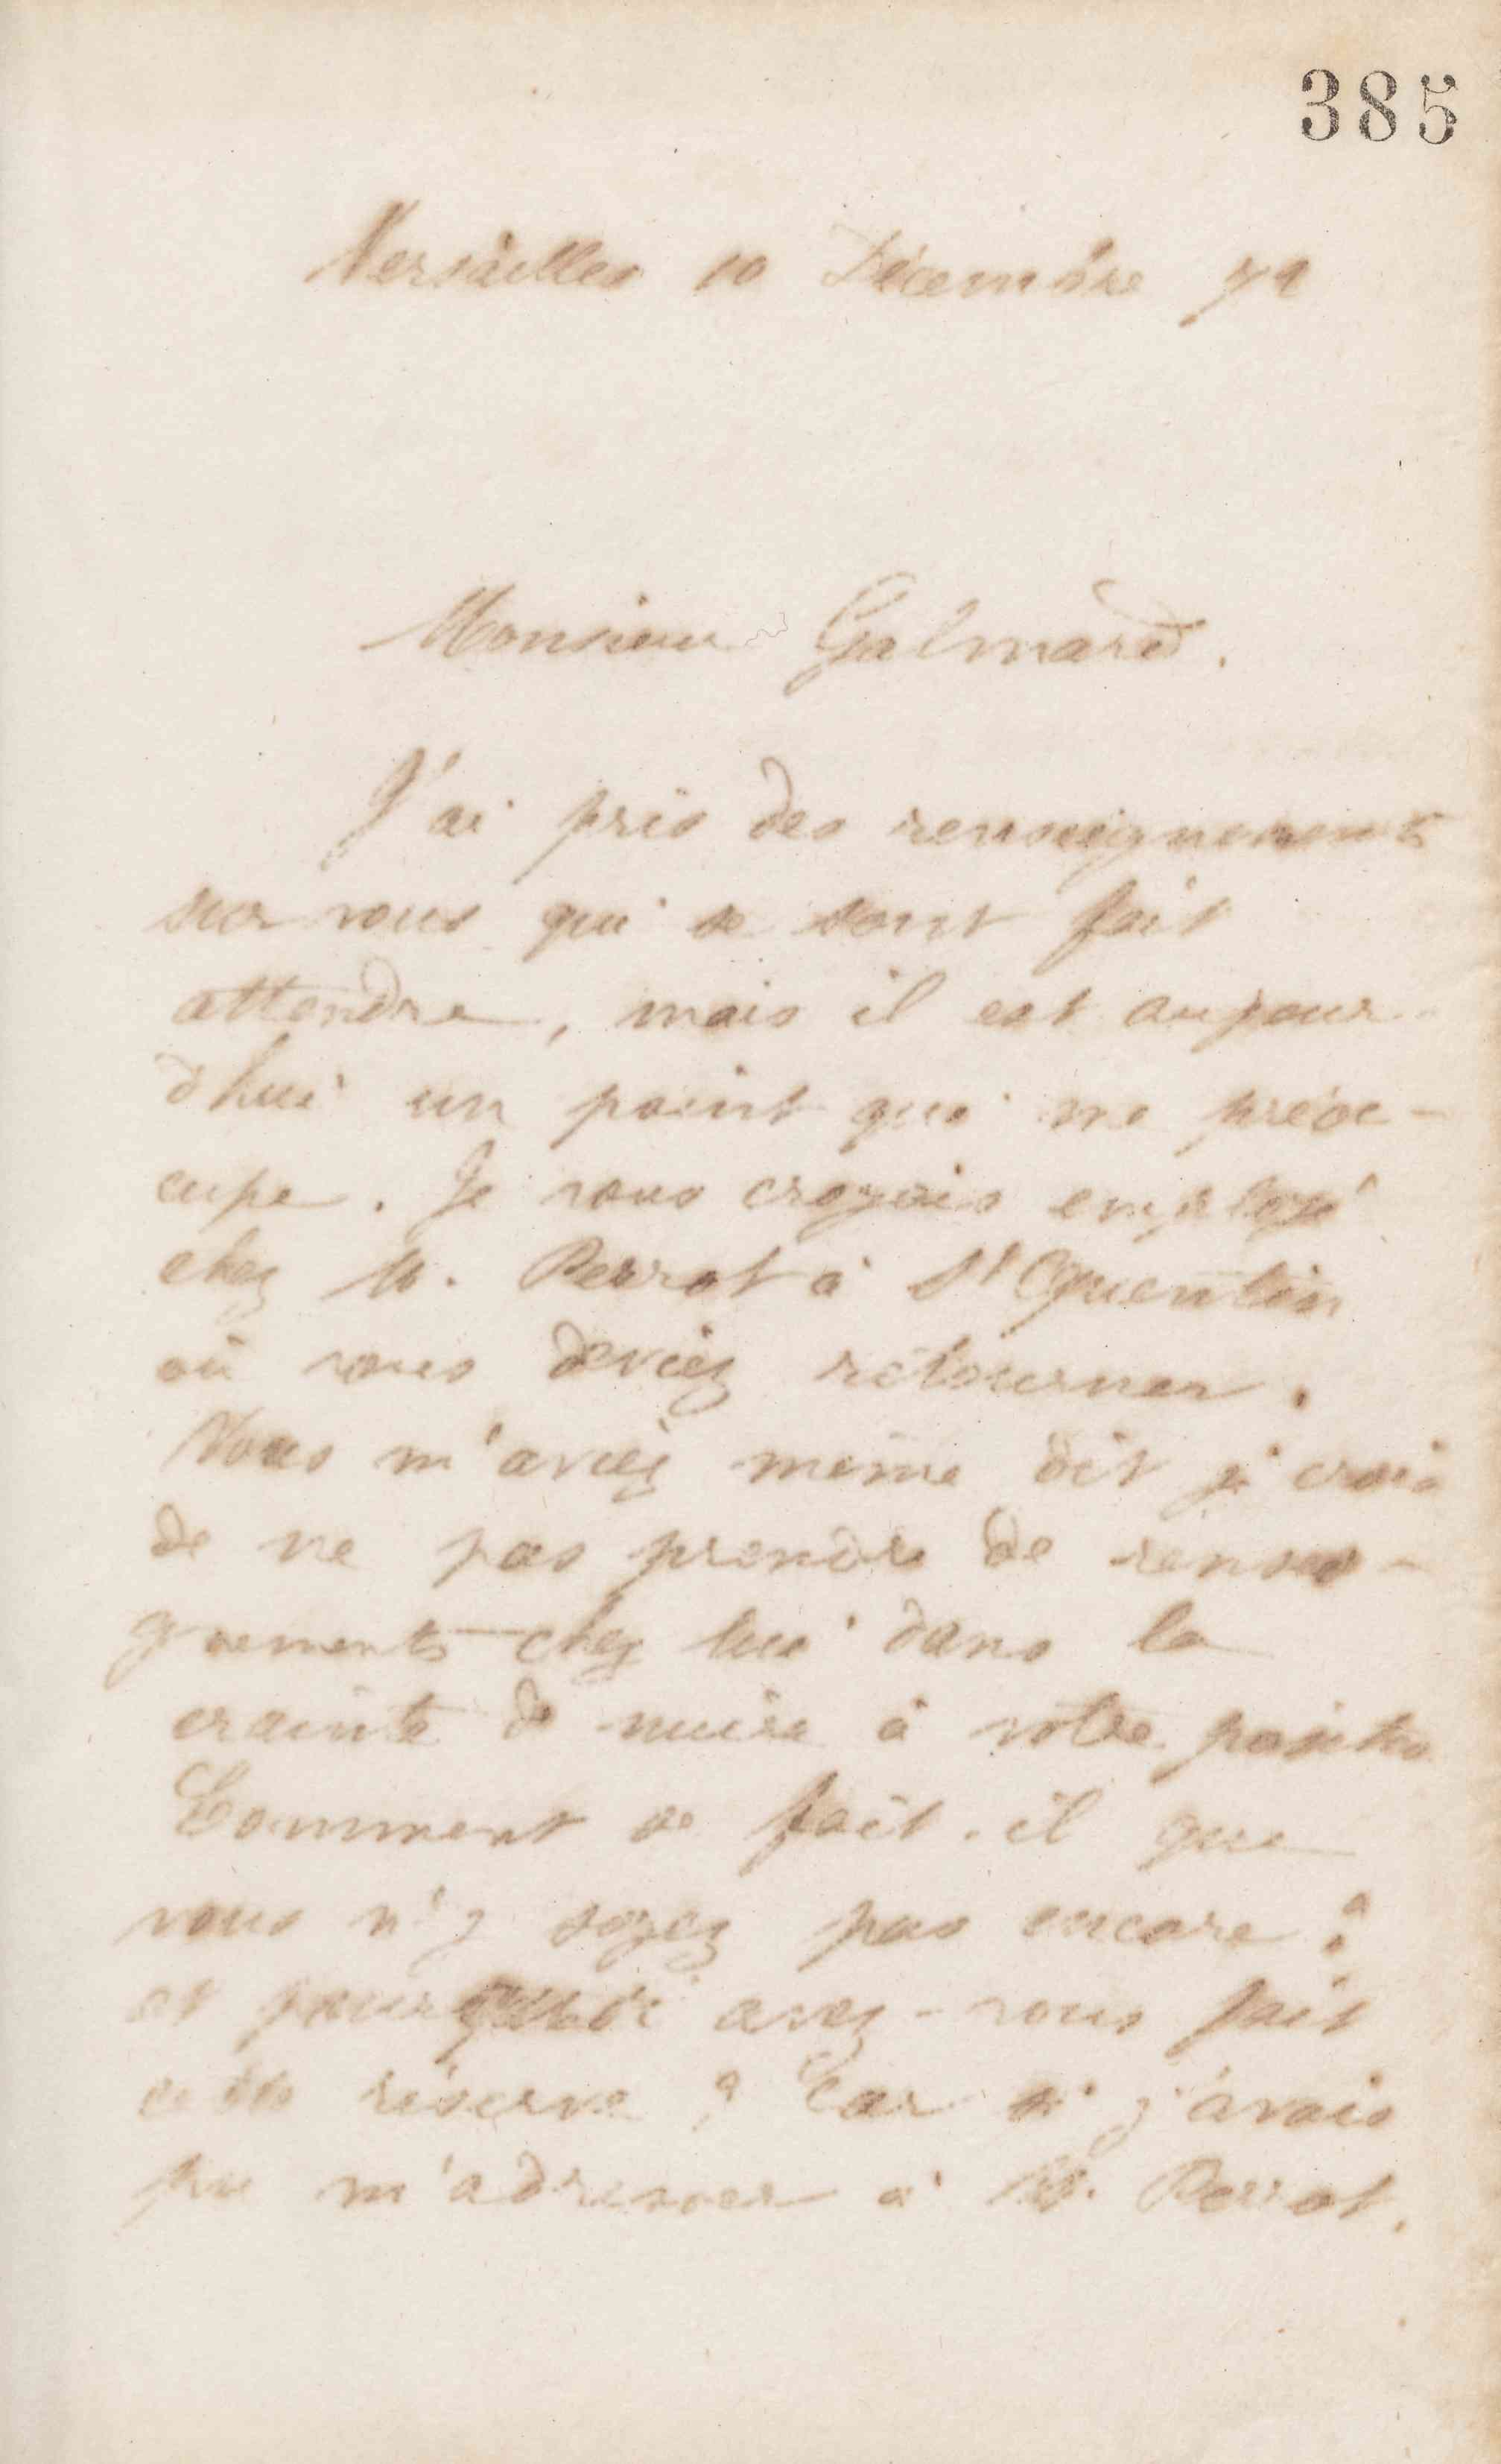 385
Versailles 10 Décembre 72
Monsieur Galmard.
J'ai pris des renseignements
sur vous qui se sont fait
attendre, mais il est aujour-
d'hui un point qui me préoc-
cupe. Je vous croyais employé
chez M. Perrot à St Quentin
où vous deviez retourner.
Vous m'aviez même dit je crois
de ne pas prendre de rensei-
gnements chez lui dans la
crainte de nuire à votre position
Comment se fait-il que
vous n'y soyez pas encore ?
et pourquoi avez-vous fait
cette réserve ? Car si j'avais
pu m'adresser à M. Perrot,